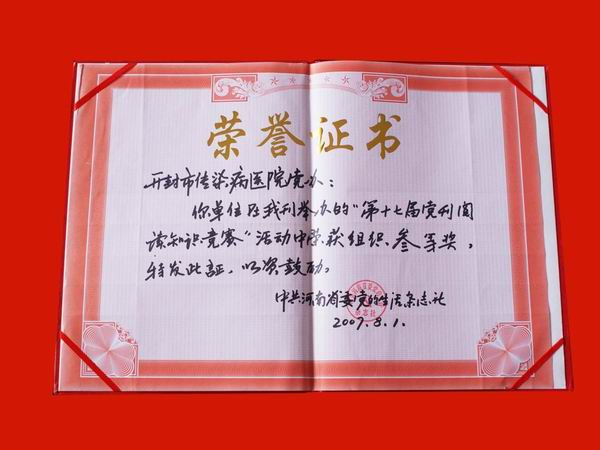 荣誉证书
开封市传染病医院党办：
你单位在我刊举办的“第十七届党刊阅
读知识竞赛”活动中荣获组织叁等奖，
特发此证，以资鼓励。
中共河南省委党的生活杂志社
2007.8.1.